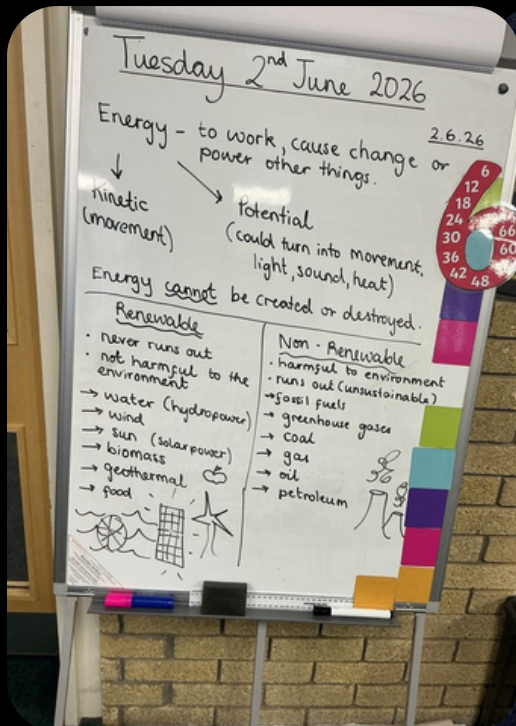 Tuesday 2nd June 2026
2.6.26
Energy - to work, cause change or
power other things.
↓
Kinetic
(movement)
Potential
(could turn into movement,
light, sound, heat)
Energy cannot be created or destroyed.
Renewable
· never runs out
· not harmful to the
environment
→ water (hydropower)
→ wind
→ sun (solar power)
→ biomass
→ geothermal
→ food
Non-Renewable
· harmful to environment
· runs out (unsustainable)
→ fossil fuels
→ greenhouse gases
→ coal
→ gas
→ oil
→ petroleum
6
12
18
24
30
36
42
48
60
66